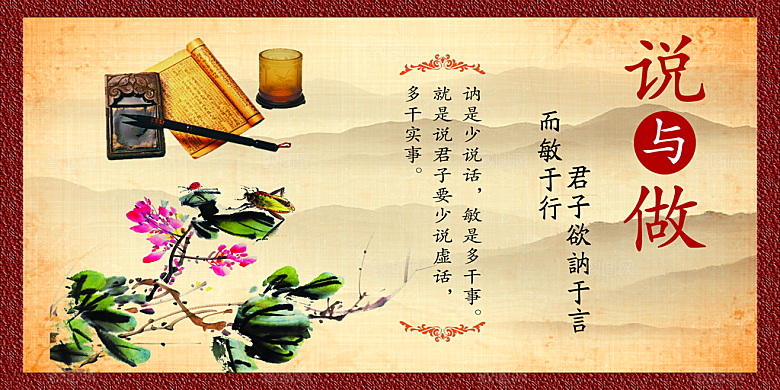 说与做
君子欲訥于言
而敏于行
讷是少说话，敏是多干事。
就是说君子要少说虚话，
多干实事。